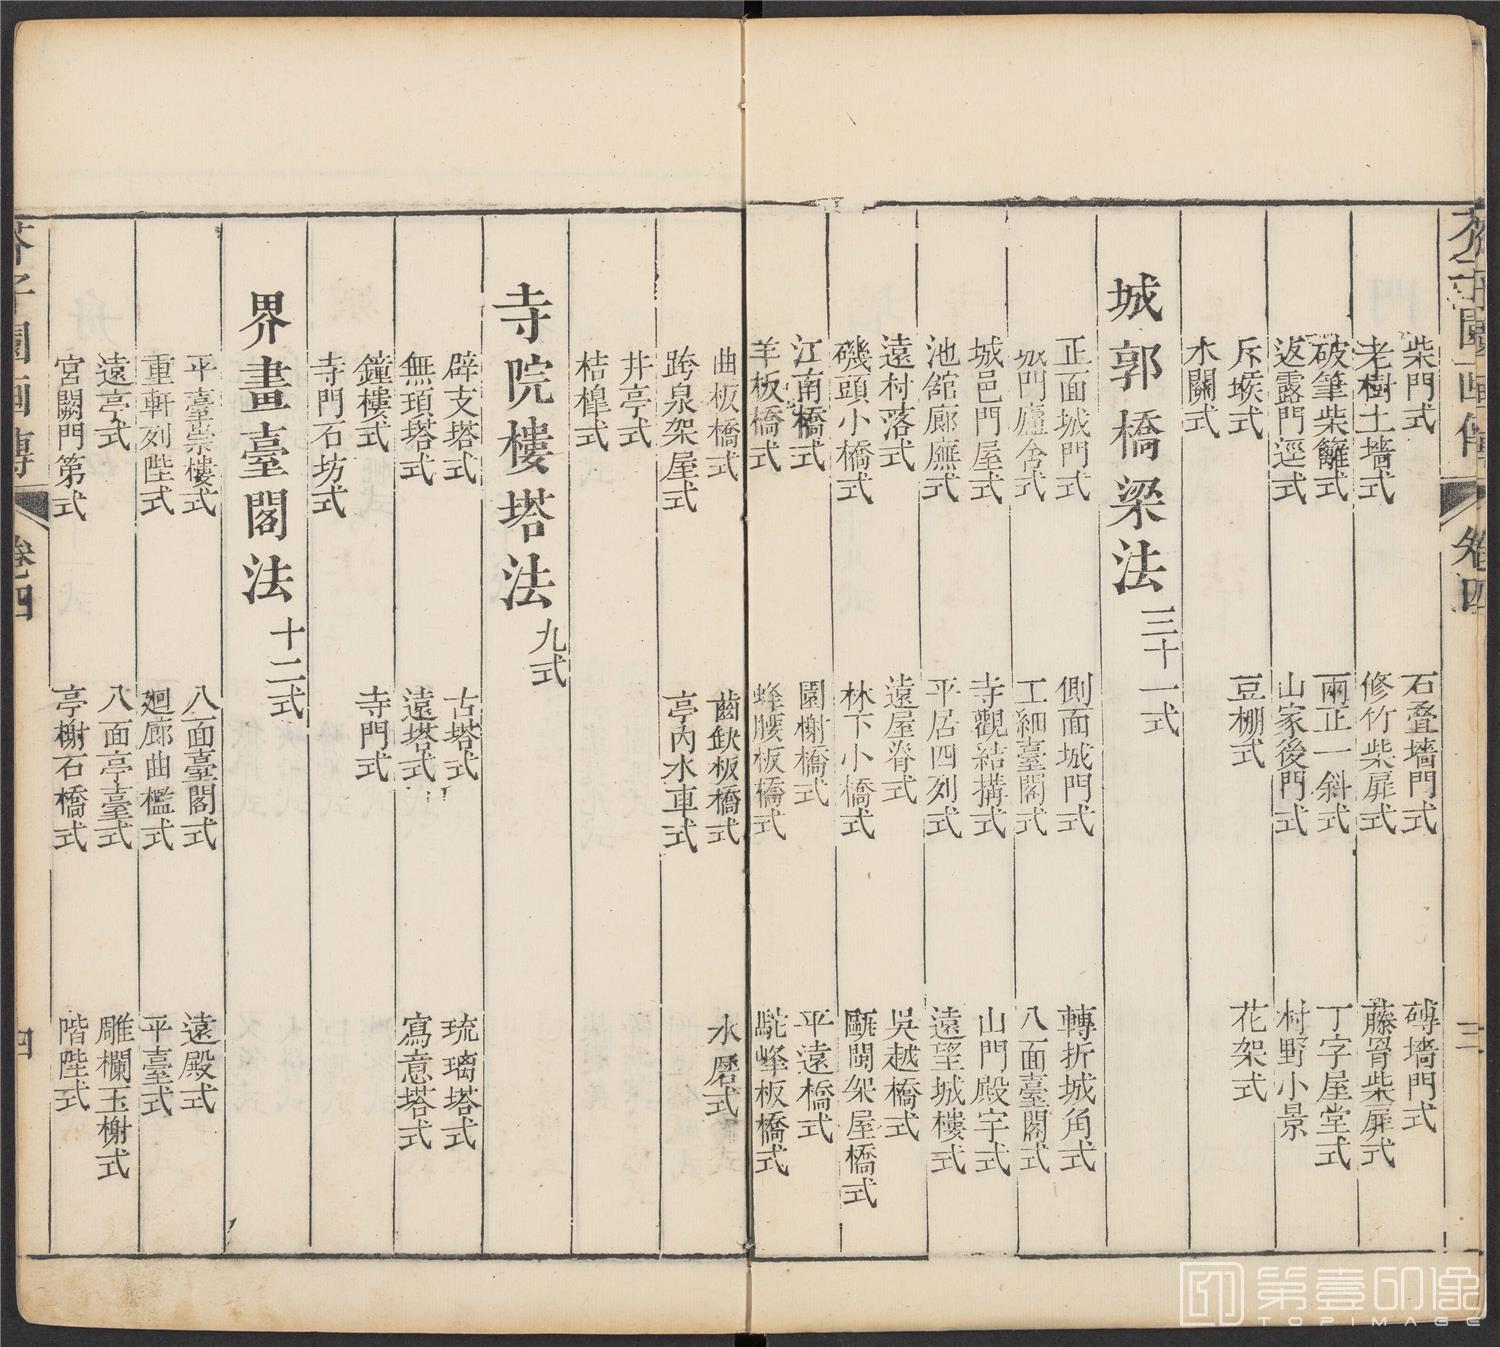 柴門式　石叠墻門式　磚墻門式
老樹土墻式　修竹柴扉式　藤骨柴扉式
破筆柴籬式　兩正一斜式　丁字屋堂式
返露門逕式　山家後門式　村野小景
斥堠式　豆棚式　花架式
木關式
城郭橋梁法三十一式
正面城門式　側面城門式　轉折城角式
城門廬舍式　工細臺閣式　八面臺閣式
城邑門屋式　寺觀結搆式　山門殿宇式
池舘廊廡式　平居四列式　遠望城樓式
遠村落式　遠屋脊式　吳越橋式
磯頭小橋式　林下小橋式　甌閩架屋橋式
江南橋式　園榭橋式　平遠橋式
羊板橋式　蜂腰板橋式　駝峰板橋式
三
曲板橋式　齒缺板橋式　水磨式
跨泉架屋式　亭內水車式
井亭式
桔槹式
寺院樓塔法九式
辟支塔式　古塔式　琉璃塔式
無頊塔式　遠塔式　寫意塔式
鐘樓式　寺門式
寺門石坊式
界畫臺閣法十二式
平臺崇樓式　八面臺閣式　遠殿式
重軒列陛式　廻廊曲檻式　平臺式
遠亭式　八面亭臺式　雕欄玉榭式
宮闕門第式　亭榭石橋式　階陛式
芥子園畫傳　卷四　四
第壹印像
TOPIMAGE